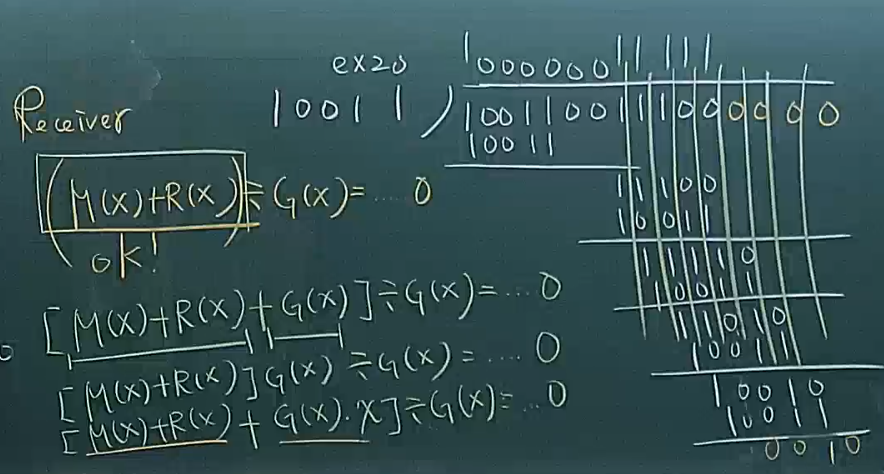 ex20
Receiver
(M(x)+R(x)) ÷ G(x) = ... 0
ok!
[M(x)+R(x)+G(x)] ÷ G(x) = ... 0
[M(x)+R(x)]G(x) ÷ G(x) = ... 0
[M(x)+R(x) + G(x)·x] ÷ G(x) = ... 0
100000011111
10011 ) 1001100111100 0000
10011
11100
10011
11110
10011
11010
10011
10010
10011
0010